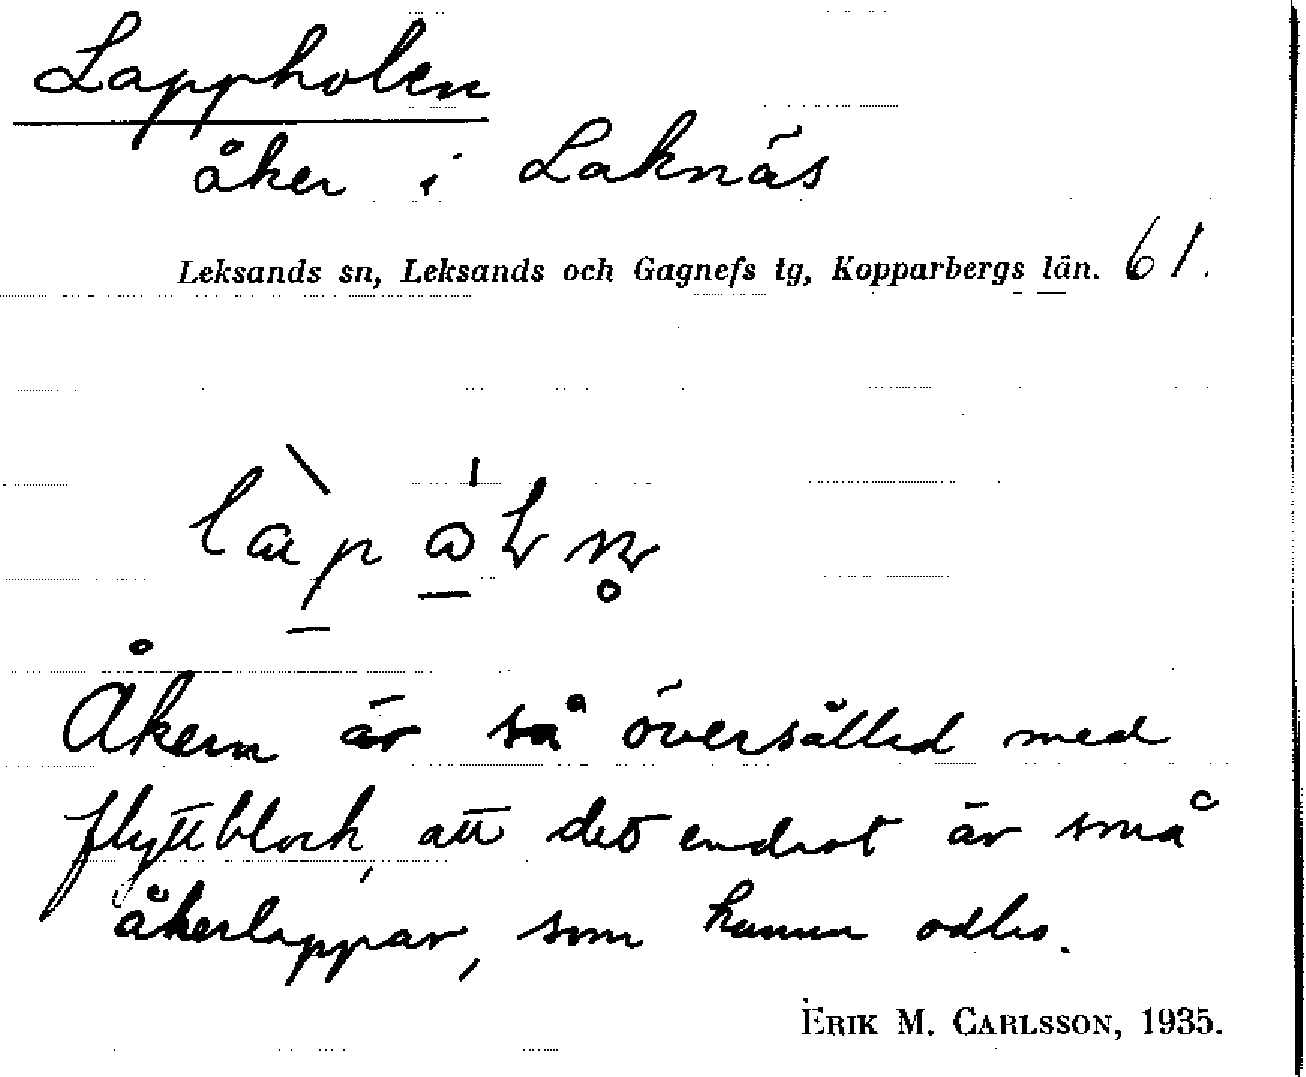 Lappholen
åker i Laknäs
Leksands sn, Leksands och Gagnefs tg, Kopparbergs län. 61.
Åkern är så översållad med
flyttblock, att det endast är små
åkerlappar, som kunna odlas.
ERIK M. CARLSSON, 1935.